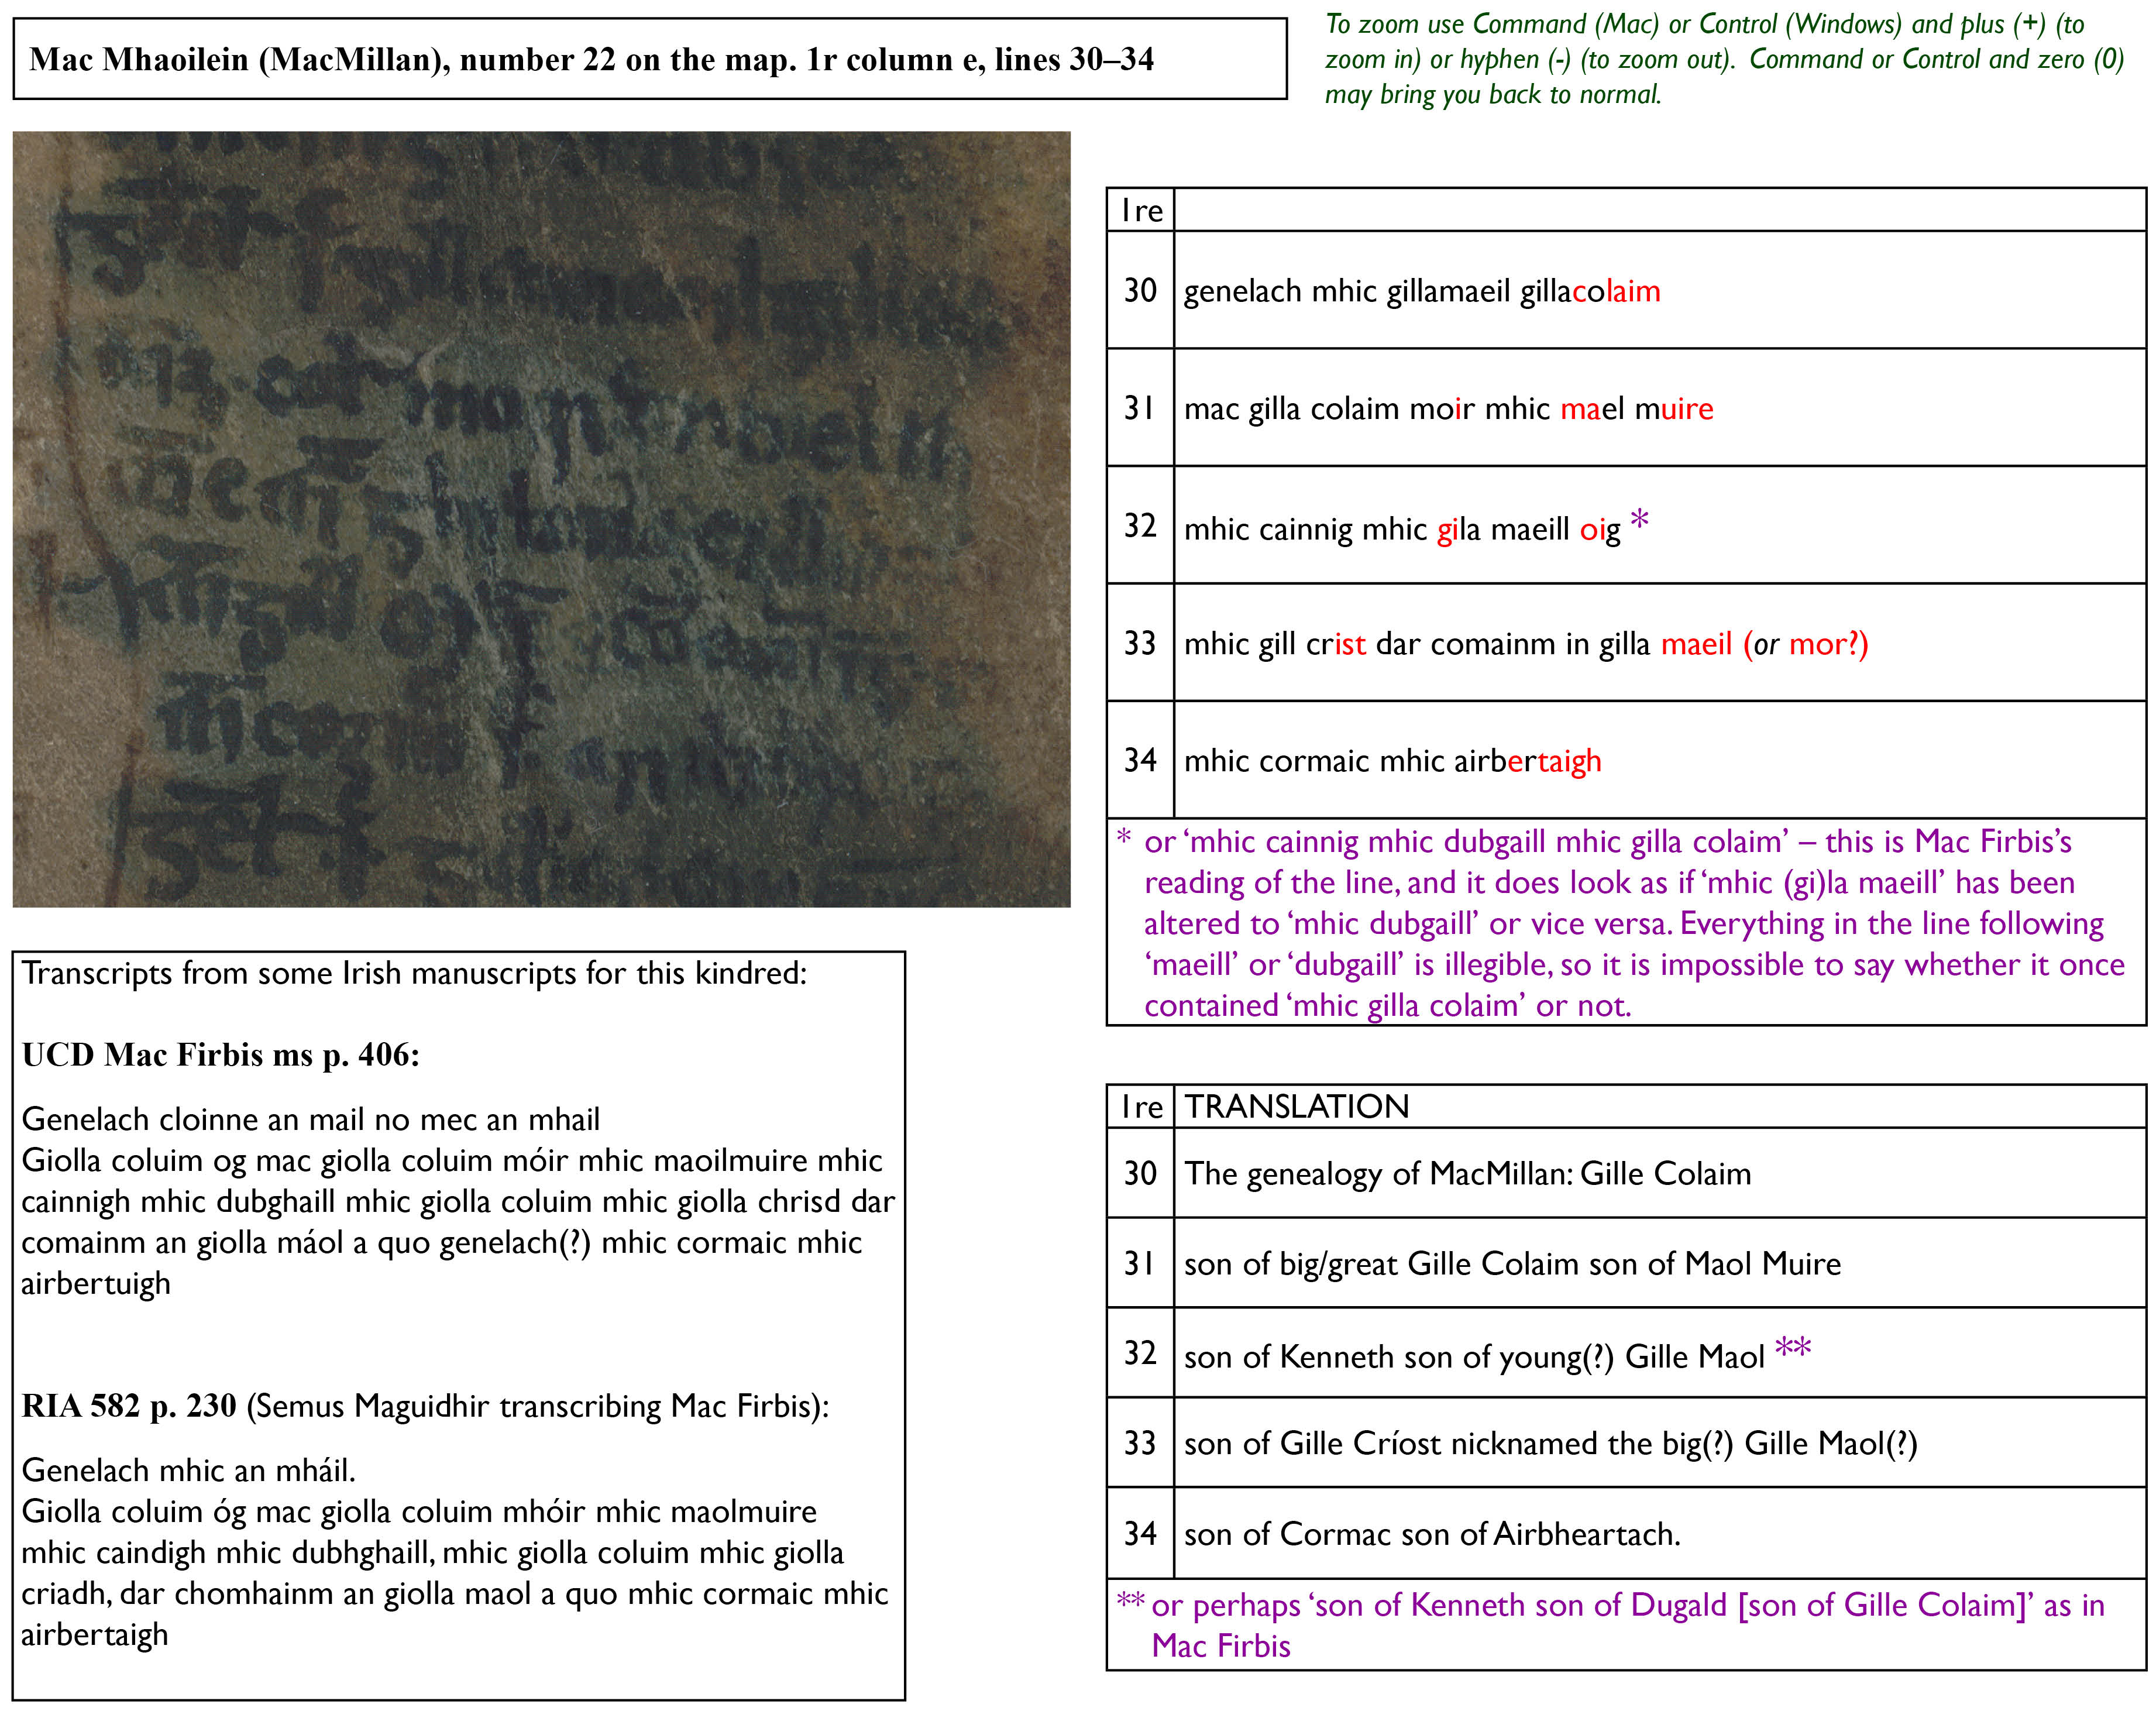 Mac Mhaoilein (MacMillan), number 22 on the map. 1r column e, lines 30–34
To zoom use Command (Mac) or Control (Windows) and plus (+) (to
zoom in) or hyphen (-) (to zoom out).  Command or Control and zero (0)
may bring you back to normal.
1re
30 genelach mhic gillamaeil gillacolaim
31 mac gilla colaim moir mhic mael muire
32 mhic cainnig mhic gila maeill oig *
33 mhic gill crist dar comainm in gilla maeil (or mor?)
34 mhic cormaic mhic airbertaigh
* or ‘mhic cainnig mhic dubgaill mhic gilla colaim’ – this is Mac Firbis’s
reading of the line, and it does look as if ‘mhic (gi)la maeill’ has been
altered to ‘mhic dubgaill’ or vice versa. Everything in the line following
‘maeill’ or ‘dubgaill’ is illegible, so it is impossible to say whether it once
contained ‘mhic gilla colaim’ or not.
Transcripts from some Irish manuscripts for this kindred:
UCD Mac Firbis ms p. 406:
Genelach cloinne an mail no mec an mhail
Giolla coluim og mac giolla coluim móir mhic maoilmuire mhic
cainnigh mhic dubghaill mhic giolla coluim mhic giolla chrisd dar
comainm an giolla máol a quo genelach(?) mhic cormaic mhic
airbertuigh
RIA 582 p. 230 (Semus Maguidhir transcribing Mac Firbis):
Genelach mhic an mháil.
Giolla coluim óg mac giolla coluim mhóir mhic maolmuire
mhic caindigh mhic dubhghaill, mhic giolla coluim mhic giolla
criadh, dar chomhainm an giolla maol a quo mhic cormaic mhic
airbertaigh
1re TRANSLATION
30 The genealogy of MacMillan: Gille Colaim
31 son of big/great Gille Colaim son of Maol Muire
32 son of Kenneth son of young(?) Gille Maol **
33 son of Gille Críost nicknamed the big(?) Gille Maol(?)
34 son of Cormac son of Airbheartach.
** or perhaps ‘son of Kenneth son of Dugald [son of Gille Colaim]’ as in
Mac Firbis